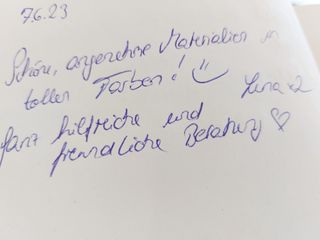 7.6.23
Schöne, angenehme Materialien in
tollen Farben! :)
Ganz hilfreiche und
freundliche Beratung ♡